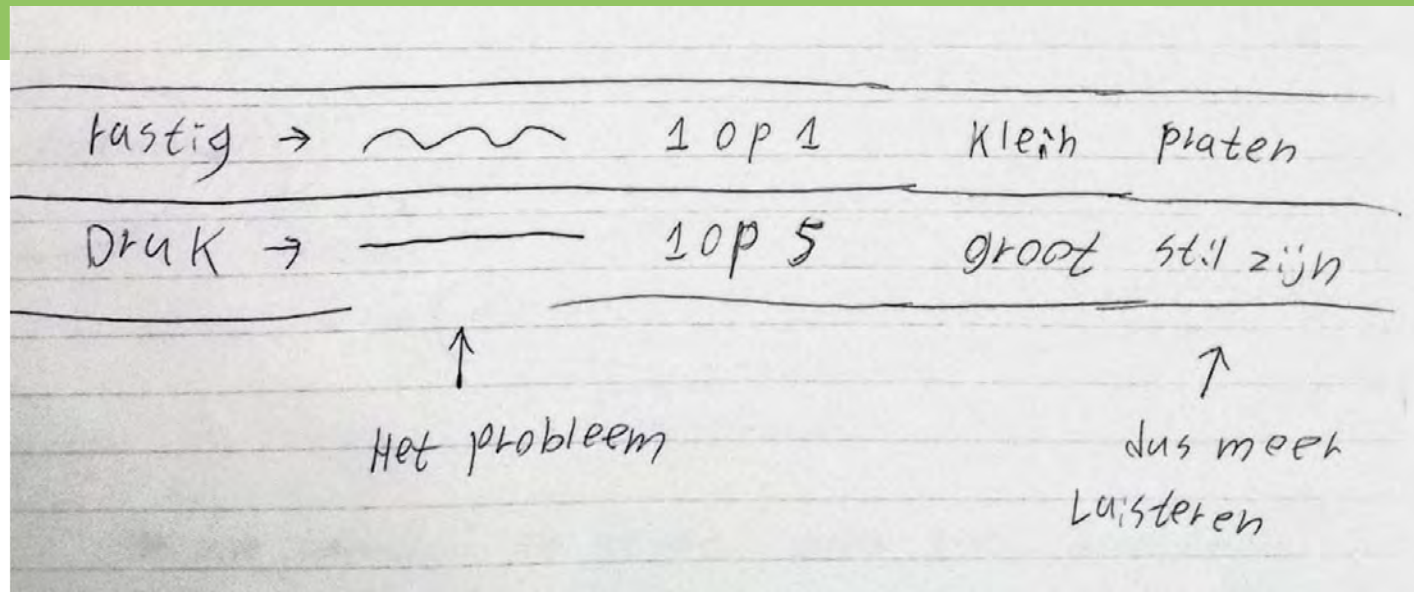 rustig → 1 op 1 klein praten
Druk → 1 op 5 groot stil zijn
Het probleem
dus meer
Luisteren